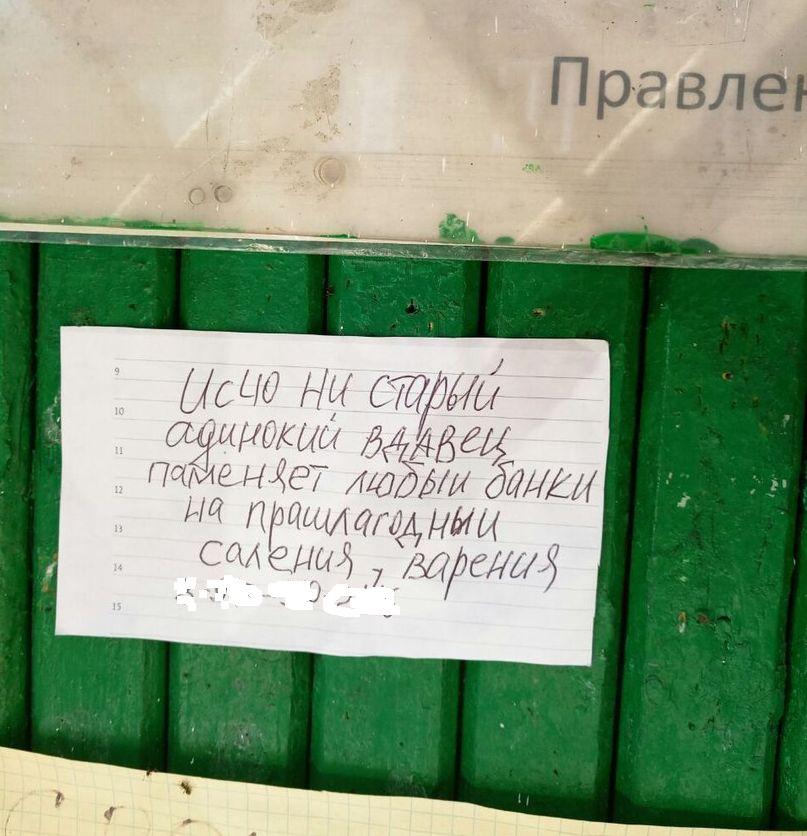 Правлен
9
Исчо ни старый
10
адинокий вдавец
11
паменяет любыи банки
12
на прашлагодныи
13
саления, варения
14
15